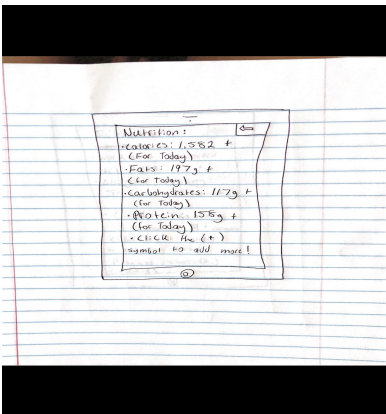 Nutrition:
•Calories: 1,582 +
(For Today)
•Fats: 197g +
(for Today)
•Carbohydrates: 117g +
(for Today)
•Protein: 158g +
(for Today)
•Click the (+)
symbol to add more!